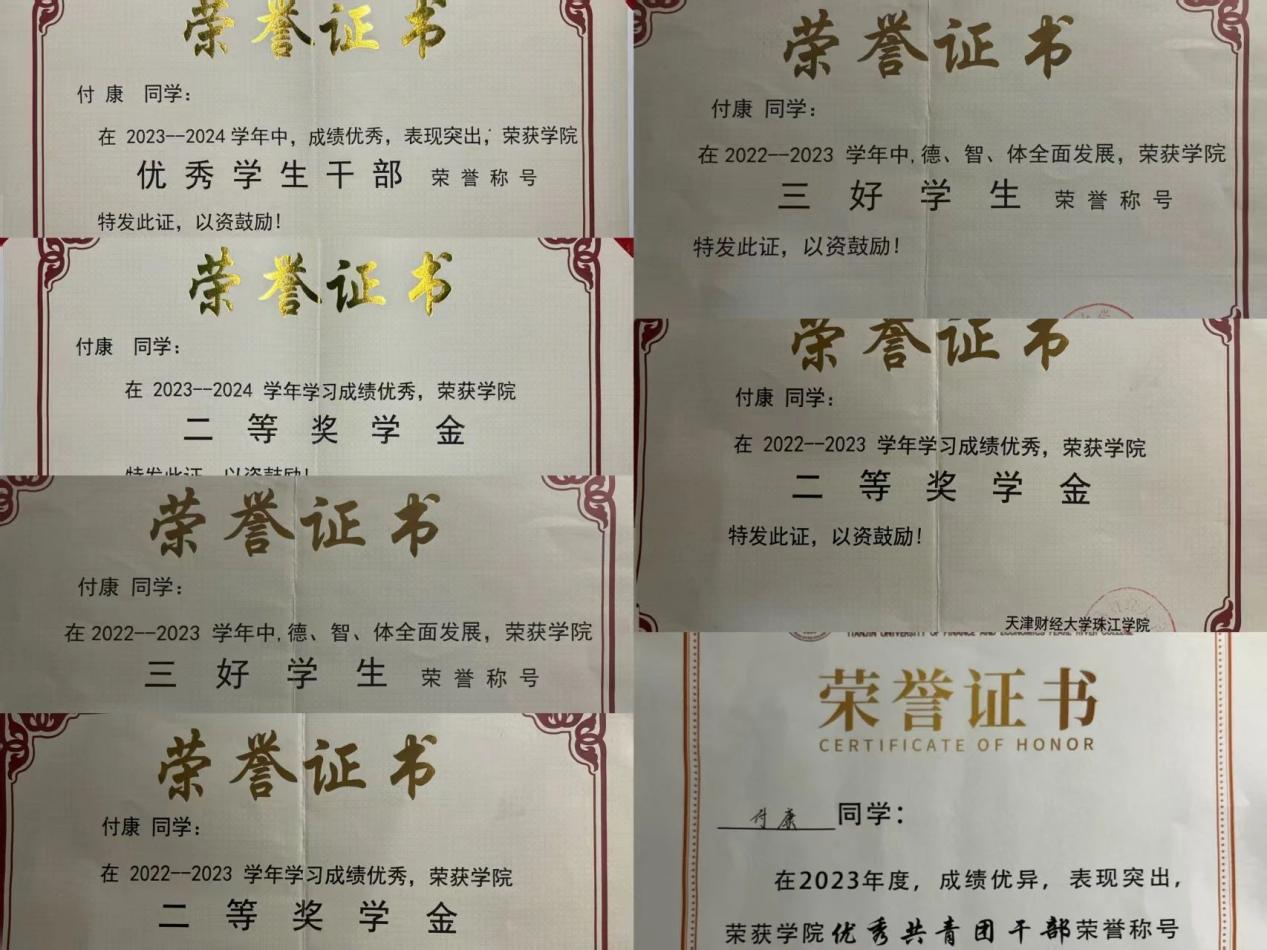 荣誉证书
付 康 同学：
在 2023--2024 学年中，成绩优秀，表现突出，荣获学院
优秀学生干部 荣誉称号
特发此证，以资鼓励！
荣誉证书
付康 同学：
在 2023--2024 学年学习成绩优秀，荣获学院
二等奖学金
特发此证，以资鼓励！
荣誉证书
付康 同学：
在 2022--2023 学年中,德、智、体全面发展，荣获学院
三好学生 荣誉称号
荣誉证书
付康 同学：
在 2022--2023 学年学习成绩优秀，荣获学院
二等奖学金
荣誉证书
付康 同学：
在 2022--2023 学年中,德、智、体全面发展，荣获学院
三好学生 荣誉称号
特发此证，以资鼓励！
荣誉证书
付康 同学：
在 2022--2023 学年学习成绩优秀，荣获学院
二等奖学金
特发此证，以资鼓励！
天津财经大学珠江学院
TIANJIN UNIVERSITY OF FINANCE AND ECONOMICS PEARL RIVER COLLEGE
荣誉证书
CERTIFICATE OF HONOR
付康 同学：
在2023年度，成绩优异，表现突出，
荣获学院优秀共青团干部荣誉称号